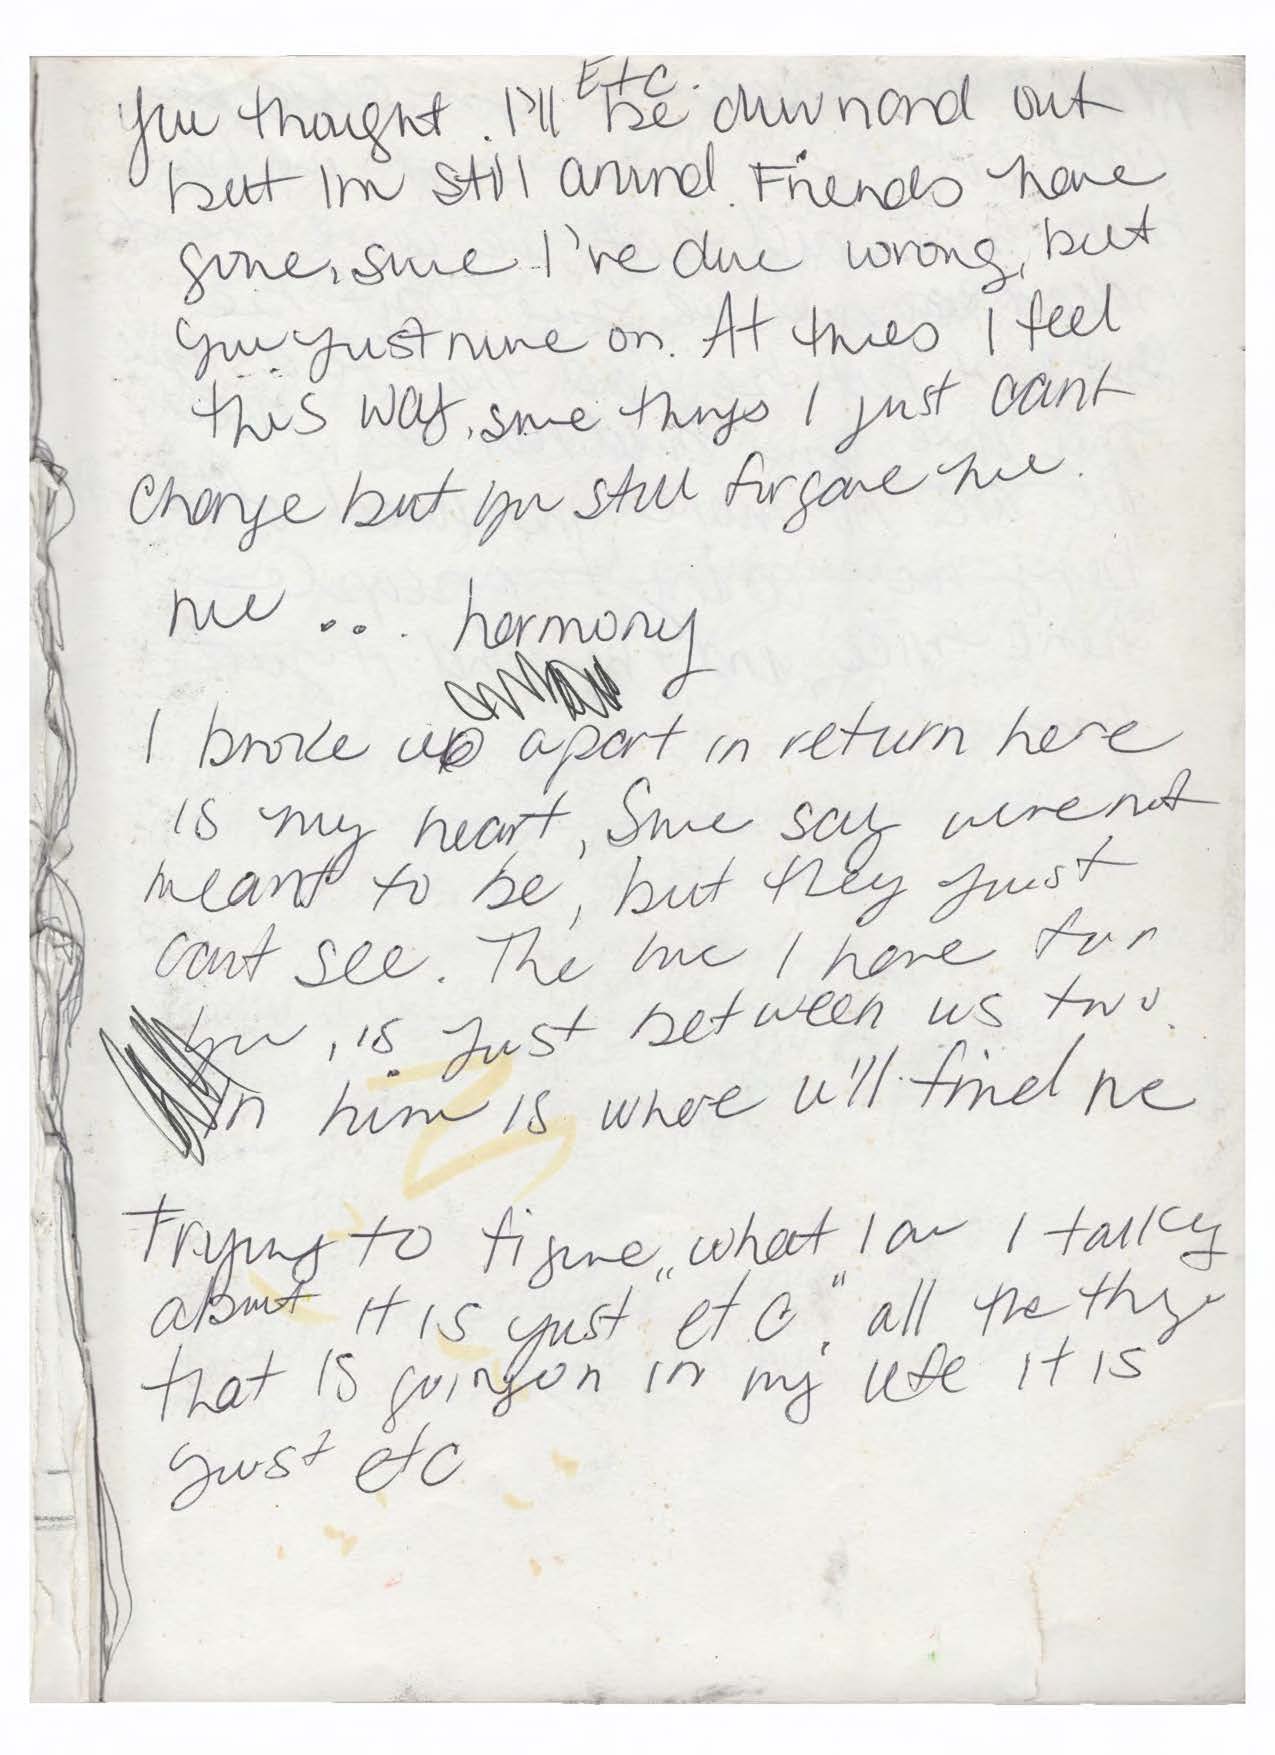 Etc.
you thought. I'll be down and out
but Im still around. Friends have
gone, sure I've done wrong, but
you just move on. At times I feel
this way, some things I just cant
change but you still forgave me.
me... harmony
I broke up apart in return here
is my heart, Some say were not
meant to be, but they just
cant see. The love I have for
you, is just between us two.
In him is where u'll find me
Trying to figure "what I am I talky
about it is just etc", all the
that is going on in my life it is
just etc